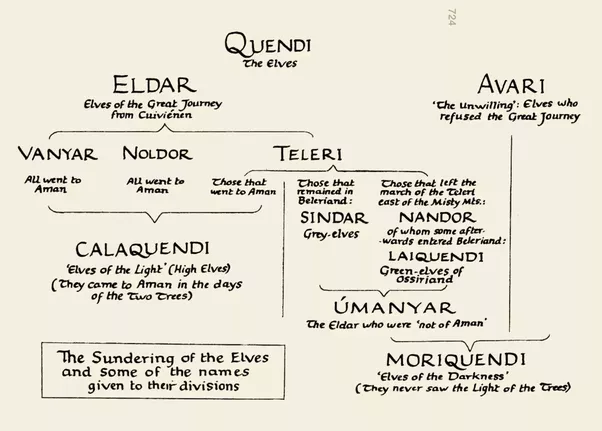 724
QUENDI
The Elves
ELDAR
Elves of the Great Journey
from Cuiviénen
AVARI
'The Unwilling': Elves who
refused the Great Journey
VANYAR
All went to
Aman
NOLDOR
All went to
Aman
TELERI
Those that
went to Aman
Those that
remained in
Beleriand:
SINDAR
Grey-elves
Those that left the
march of the Teleri
east of the Misty Mts.:
NANDOR
of whom some after-
-wards entered Beleriand:
LAIQUENDI
Green-elves of
Ossiriand
CALAQUENDI
'Elves of the Light' (High Elves)
(They came to Aman in the days
of the Two Trees)
ÚMANYAR
The Eldar who were 'not of Aman'
MORIQUENDI
'Elves of the Darkness'
(They never saw the Light of the Trees)
The Sundering of the Elves
and some of the names
given to their divisions